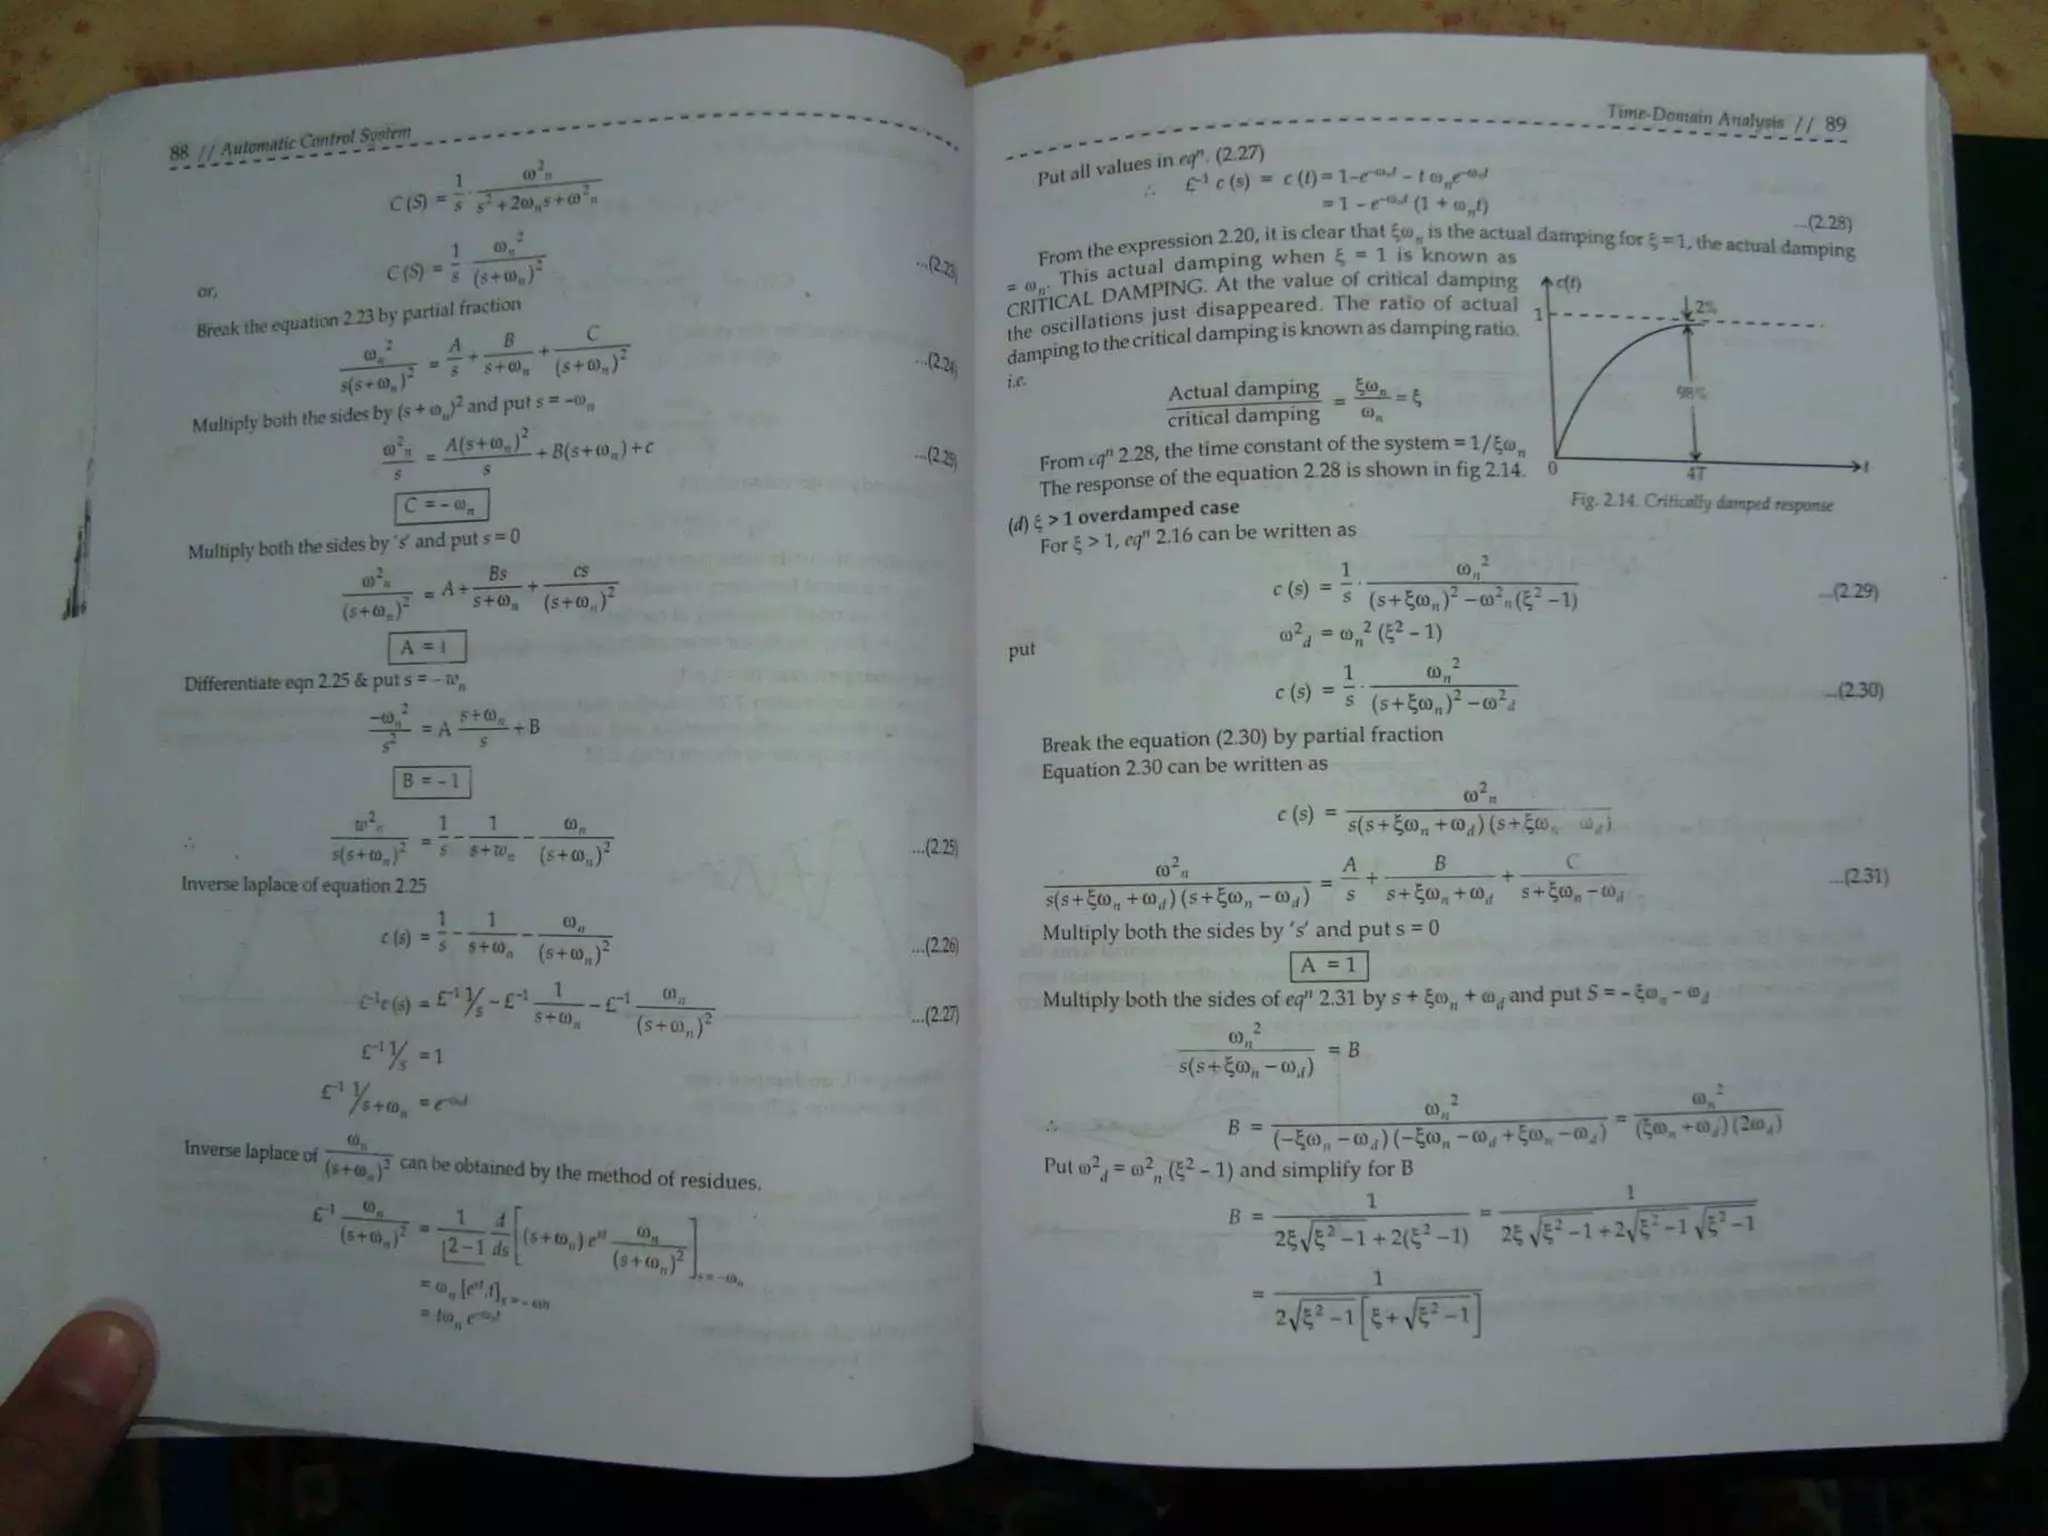 88 // Automatic Control System
C (S) = 1/s · ω²n / (s² + 2ωn s + ω²n)
or, C (S) = 1/s · ωn² / (s+ωn)² ...(2.23)
Break the equation 2.23 by partial fraction
ωn² / s(s+ωn)² = A/s + B/(s+ωn) + C/(s+ωn)² ...(2.24)
Multiply both the sides by (s + ωn)² and put s = –ωn
ω²n / s = A(s+ωn)² / s + B(s+ωn) + c ...(2.25)
C = – ωn
Multiply both the sides by 's' and put s = 0
ω²n / (s+ωn)² = A + Bs/(s+ωn) + cs/(s+ωn)²
A = 1
Differentiate eqn 2.25 & put s = – wn
–ωn² / s² = A (s+ωn)/s + B
B = – 1
∴ w²n / s(s+ωn)² = 1/s – 1/(s+wn) – ωn/(s+ωn)² ...(2.25)
Inverse laplace of equation 2.25
c (s) = 1/s – 1/(s+ωn) – ωn/(s+ωn)² ...(2.26)
£⁻¹c (s) = £⁻¹ 1/s – £⁻¹ 1/(s+ωn) – £⁻¹ ωn/(s+ωn)² ...(2.27)
£⁻¹ 1/s = 1
£⁻¹ 1/s+ωn = e^–ωnt
Inverse laplace of ωn/(s+ωn)² can be obtained by the method of residues.
£⁻¹ ωn/(s+ωn)² = 1/⌊2–1 d/ds [(s+ωn) e^st ωn/(s+ωn)²] s = –ωn
= ωn [e^st.t] s = – ωn
= tωn e^–ωnt
Time-Domain Analysis // 89
Put all values in eqⁿ. (2.27)
∴ £⁻¹ c (s) = c (t) = 1–e^–ωnt – t ωn e^–ωnt
= 1 – e^–ωnt (1 + ωnt) ...(2.28)
From the expression 2.20, it is clear that ξωn is the actual damping for ξ = 1, the actual damping
= ωn. This actual damping when ξ = 1 is known as
CRITICAL DAMPING. At the value of critical damping
the oscillations just disappeared. The ratio of actual
damping to the critical damping is known as damping ratio.
i.e.
Actual damping / critical damping = ξωn / ωn = ξ
From eqⁿ 2.28, the time constant of the system = 1/ξωn
The response of the equation 2.28 is shown in fig 2.14.
c(t)
1
2%
98%
0
4T
t
Fig. 2.14. Critically damped response
(d) ξ > 1 overdamped case
For ξ > 1, eqⁿ 2.16 can be written as
c (s) = 1/s · ωn² / ((s+ξωn)² – ω²n(ξ² – 1)) ...(2.29)
put ω²d = ωn² (ξ² – 1)
c (s) = 1/s · ωn² / ((s+ξωn)² – ω²d) ...(2.30)
Break the equation (2.30) by partial fraction
Equation 2.30 can be written as
c (s) = ω²n / s(s+ξωn+ωd)(s+ξωn – ωd)
ω²n / s(s+ξωn+ωd)(s+ξωn–ωd) = A/s + B/(s+ξωn+ωd) + C/(s+ξωn–ωd) ...(2.31)
Multiply both the sides by 's' and put s = 0
A = 1
Multiply both the sides of eqⁿ 2.31 by s + ξωn + ωd and put S = – ξωn – ωd
ωn² / s(s+ξωn–ωd) = B
∴ B = ωn² / (–ξωn–ωd)(–ξωn–ωd+ξωn–ωd) = ωn² / (ξωn+ωd)(2ωd)
Put ω²d = ω²n (ξ² – 1) and simplify for B
B = 1 / (2ξ√(ξ²–1) + 2(ξ²–1)) = 1 / (2ξ√(ξ²–1) + 2√(ξ²–1) √(ξ²–1))
= 1 / (2√(ξ²–1) [ξ + √(ξ²–1)])